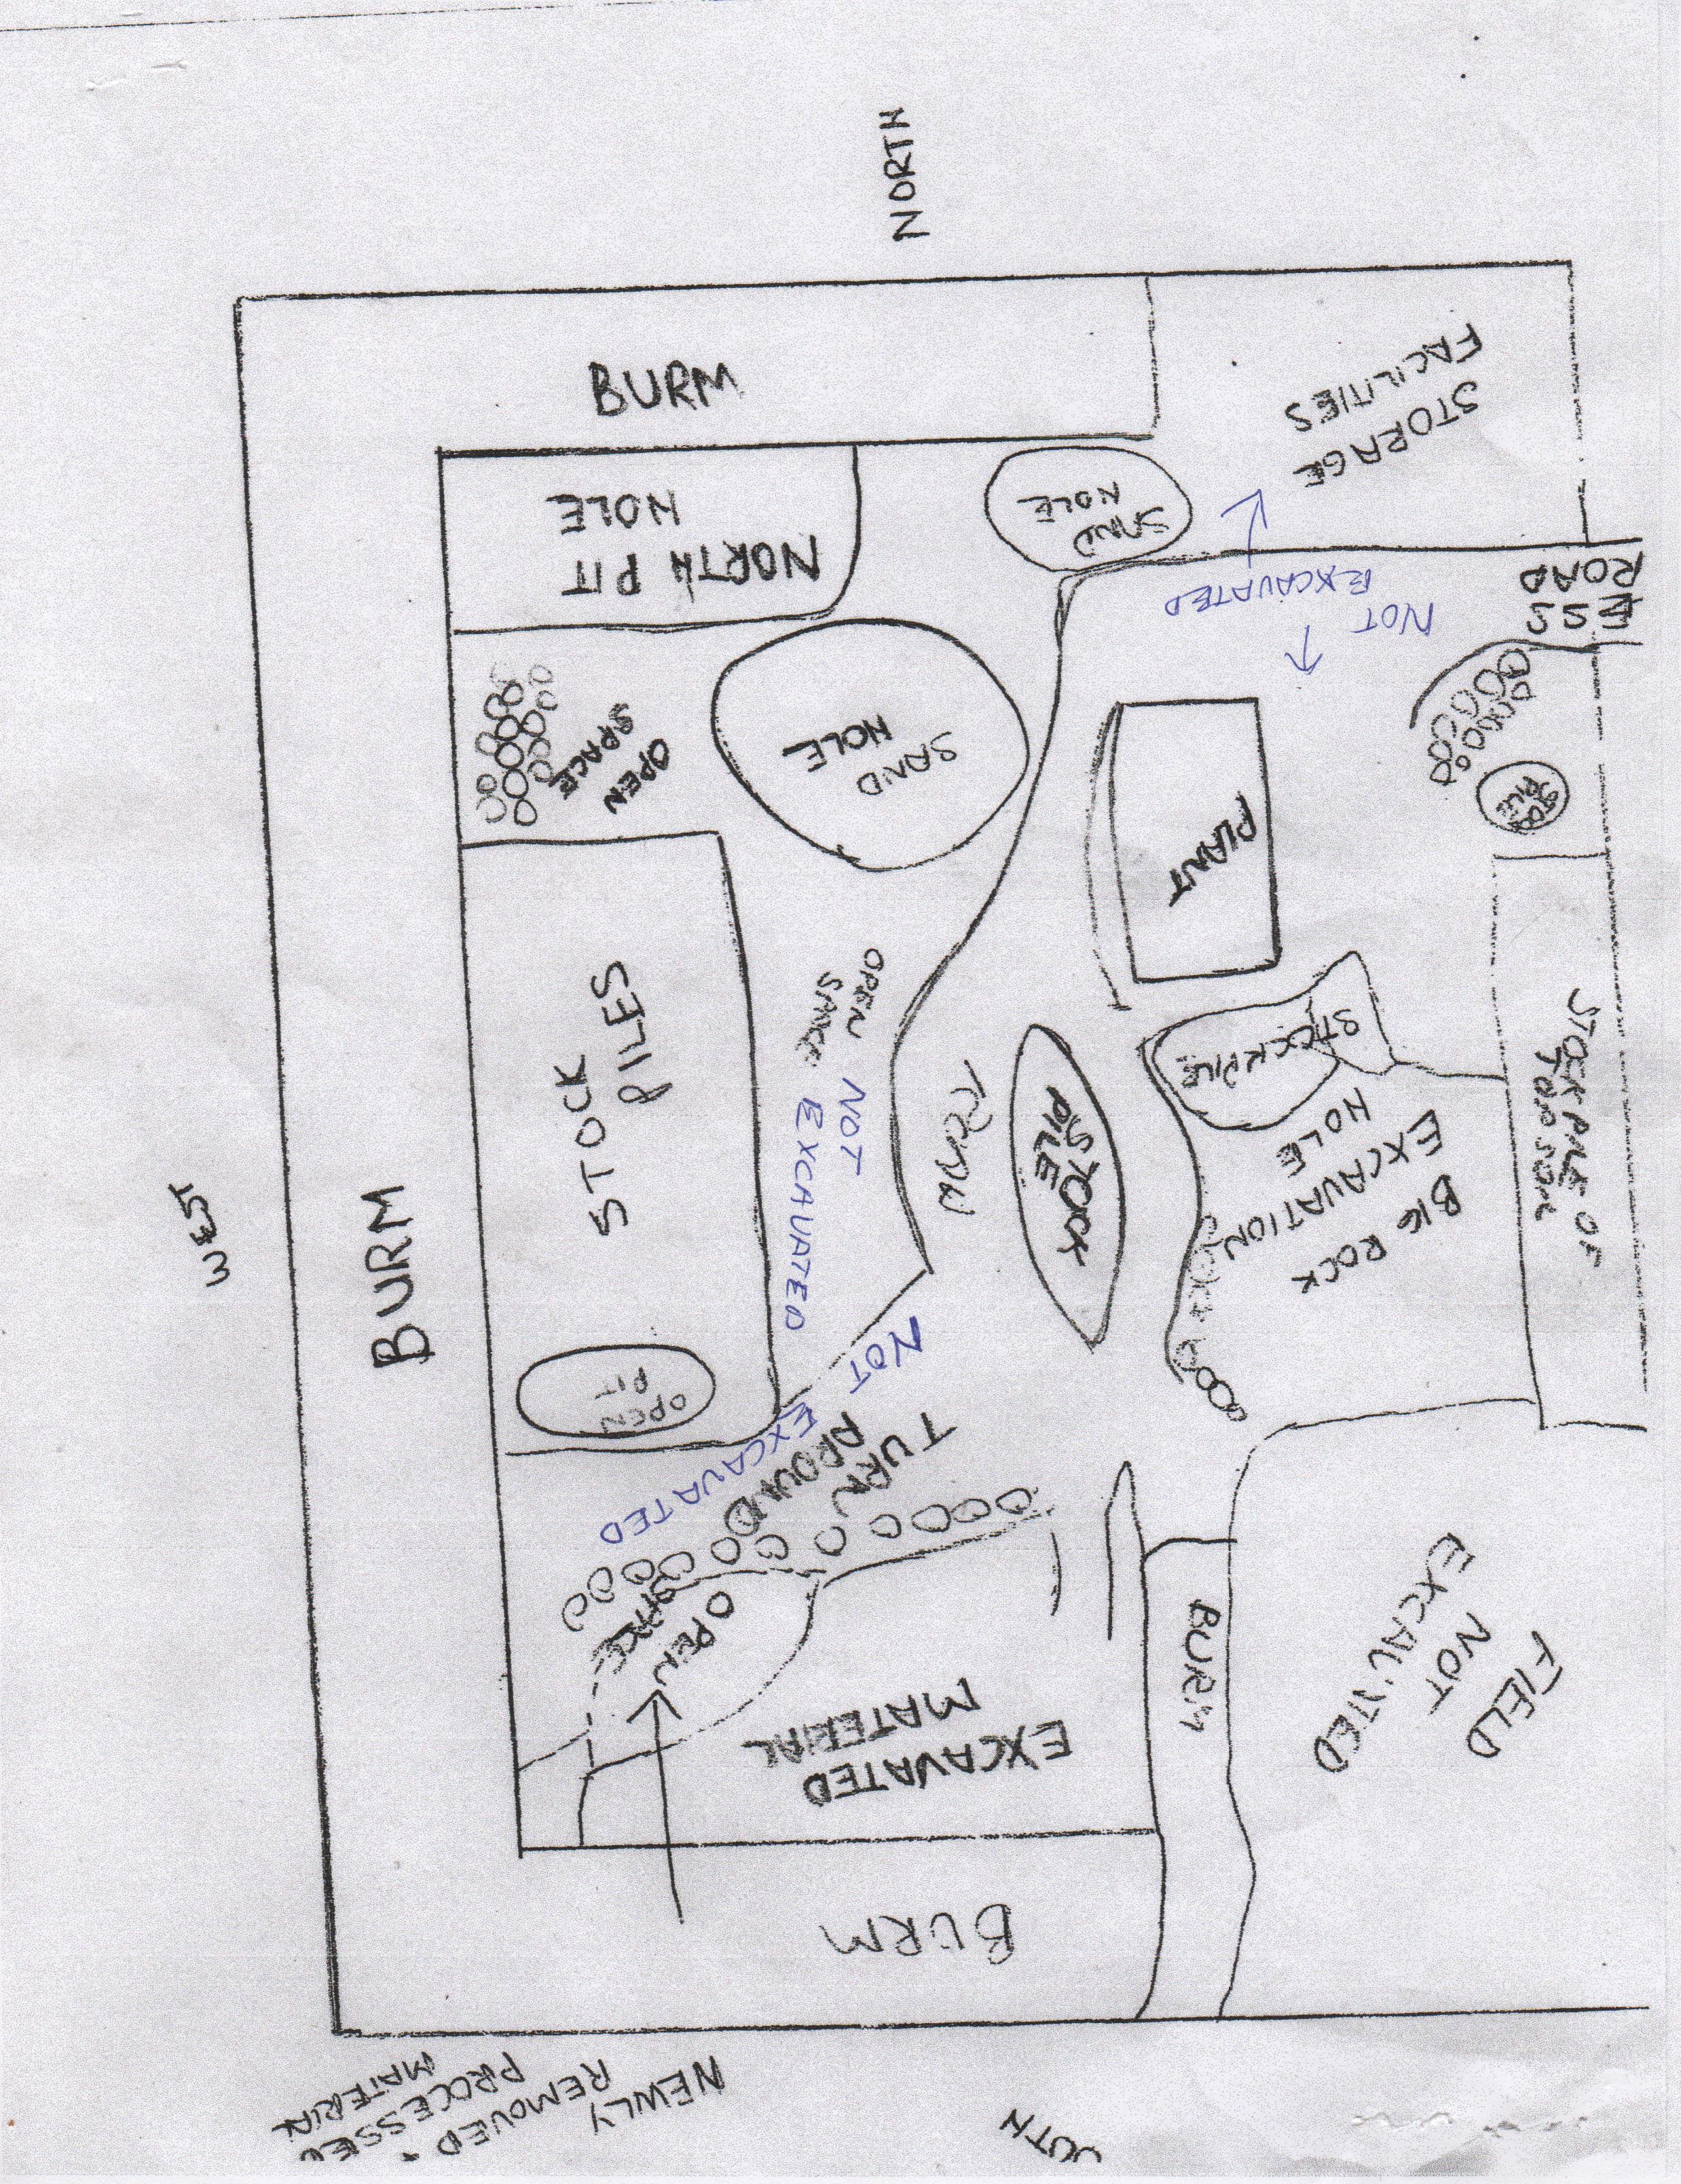 NORTH
BURM
STORAGE
FACILITIES
NORTH PIT
HOLE
SAND
HOLE
NOT
EXCAVATED
ROAD
OPEN
SPACE
SAND
HOLE
PLANT
STOCK
PILES
OPEN
SPACE
NOT
EXCAVATED
STOCK
PILE
STOCKPILE
BIG ROCK
EXCAVATION
HOLE
STOCKPILE OF
TOPSOIL
WEST
BURM
OPEN
PIT
NOT
EXCAVATED
TURN
AROUND
OPEN
SPACE
EXCAVATED
MATERIAL
BURM
FIELD
NOT
EXCAVATED
BURM
NEWLY
REMOVED +
PROCESSED
MATERIAL
OUTH